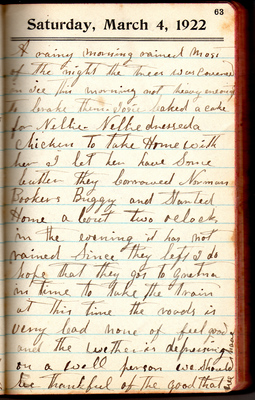 63
Saturday, March 4, 1922
A rainy morning rained most
of the night the trees was covered
in ice this morning not heavy enough
to brake them I baked a cake
for Nellie Nellie dressed a
Chicken to take Home with
her I let her have Some
butter they borrowed Norman
Bookers Buggy and Started
Home a bout two oclock
in the evening it has not
rained Since they left I do
hope that they got to Gretna
in time to take the train
at this time the roads is
very bad none of feel good
and the wether is depressing
on a well person we should
be thankful of the good that
we have